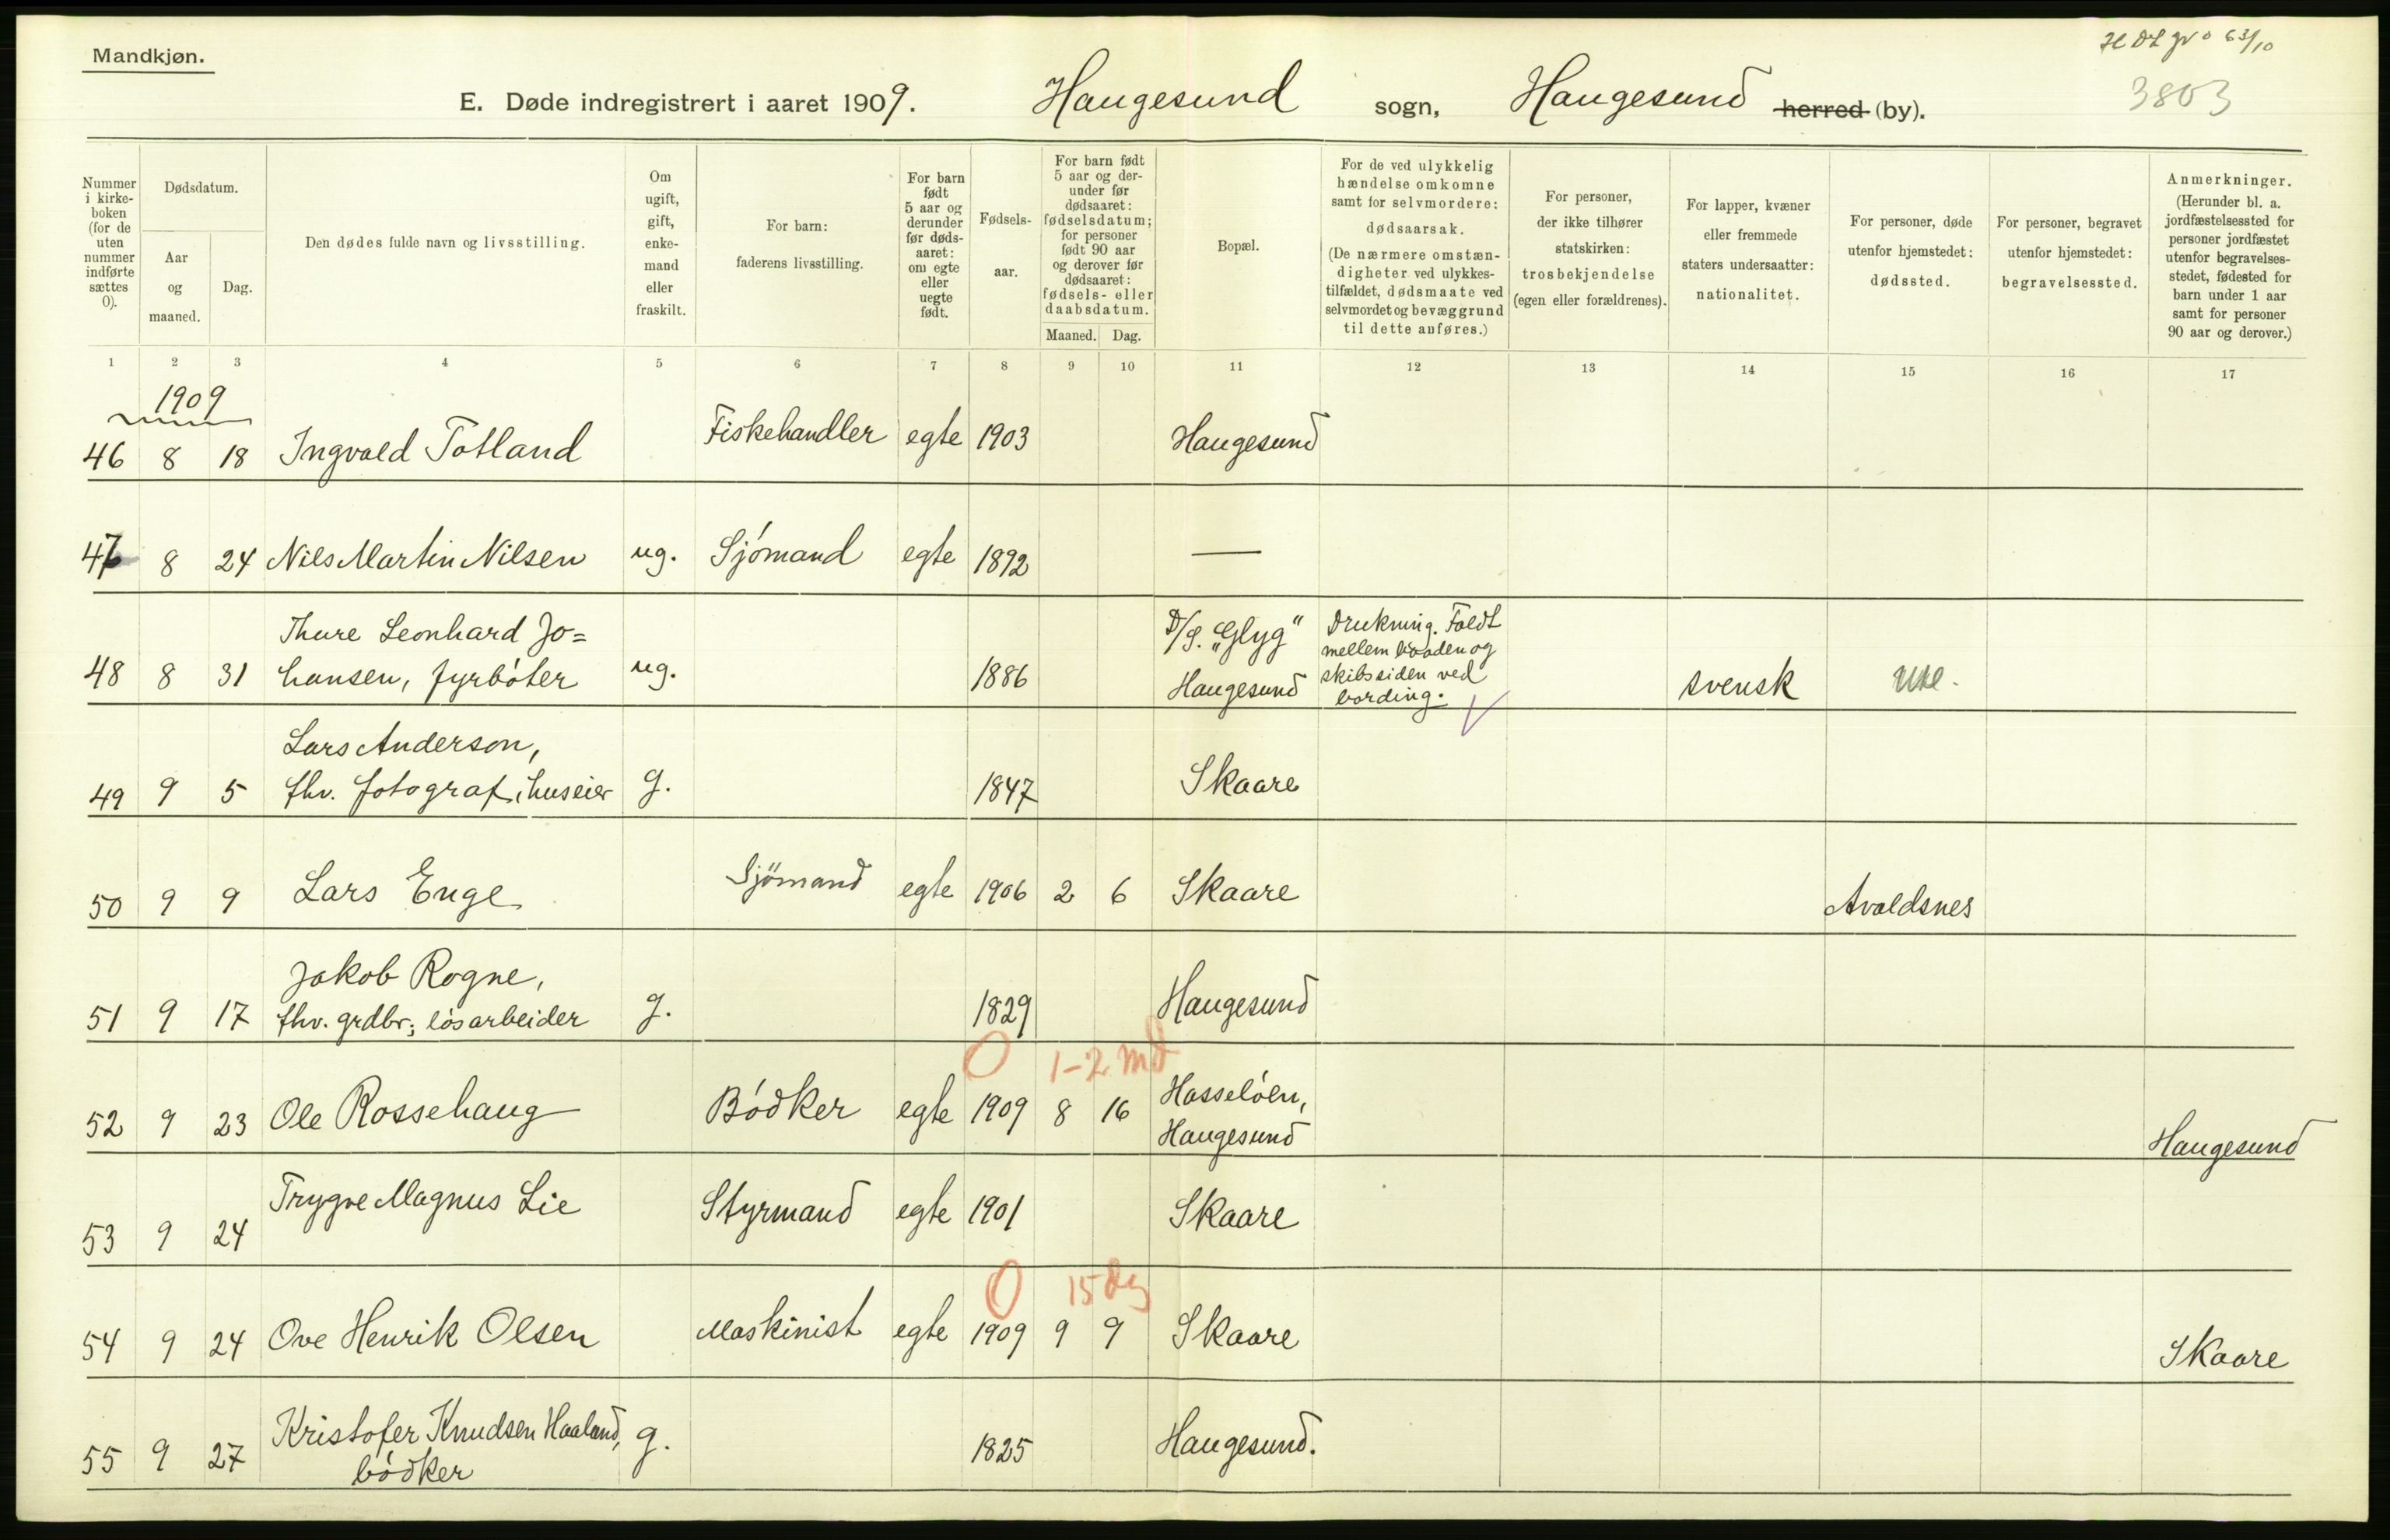 Mandkjøn.
63/10
3803
E. Døde indregistrert i aaret 1909. Haugesund sogn, Haugesund herred (by).
Nummer i kirke-boken (for de uten nummer indførte sættes 0).
Dødsdatum.
Aar og maaned.
Dag.
Den dødes fulde navn og livsstilling.
Om ugift, gift, enke-mand eller fraskilt.
For barn: faderens livsstilling.
For barn født 5 aar og derunder før døds-aaret: om egte eller uegte født.
Fødsels-aar.
For barn født 5 aar og der-under før dødsaaret: fødselsdatum; for personer født 90 aar og derover før dødsaaret: fødsels- eller daabsdatum.
Maaned. Dag.
Bopæl.
For de ved ulykkelig hændelse omkomne samt for selvmordere: dødsaarsak. (De nærmere omstæn-digheter ved ulykkes-tilfældet, dødsmaate ved selvmordet og bevæggrund til dette anføres.)
For personer, der ikke tilhører statskirken: trosbekjendelse (egen eller forældrenes).
For lapper, kvæner eller fremmede staters undersaatter: nationalitet.
For personer, døde utenfor hjemstedet: dødssted.
For personer, begravet utenfor hjemstedet: begravelsessted.
Anmerkninger. (Herunder bl. a. jordfæstelsessted for personer jordfæstet utenfor begravelses-stedet, fødested for barn under 1 aar samt for personer 90 aar og derover.)
1 2 3 4 5 6 7 8 9 10 11 12 13 14 15 16 17
1909
46 8 18 Ingvald Totland Fiskehandler egte 1903 Haugesund
47 8 24 Nils Martin Nilsen ug. Sjómand egte 1892 —
Thure Leonhard Jo= D/S. „Glyg" Drukning. Faldt
mellem baaden og
48 8 31 hansen, fyrbóter ug. 1886 Haugesund skibssiden ved svensk
bording.
Lars Anderson,
49 9 5 fhv. fotograf, huseier g. 1847 Skaare
50 9 9 Lars Enge Sjömand egte 1906 2 6 Skaare Avaldsnes
Jakob Rogne,
51 9 17 fhv. grdbr; lósarbeider g. 1829 Haugesund
0 1-2 md
52 9 23 Ole Rossehaug Bódker egte 1909 8 16 Hasselóen,
Haugesund Haugesund
53 9 24 Trygve Magnus Lie Styrmand egte 1901 Skaare
0 15 dg
54 9 24 Ove Henrik Olsen Maskinist egte 1909 9 9 Skaare Skaare
55 9 27 Kristofer Knudsen Haaland, g. 1825 Haugesund.
bódker